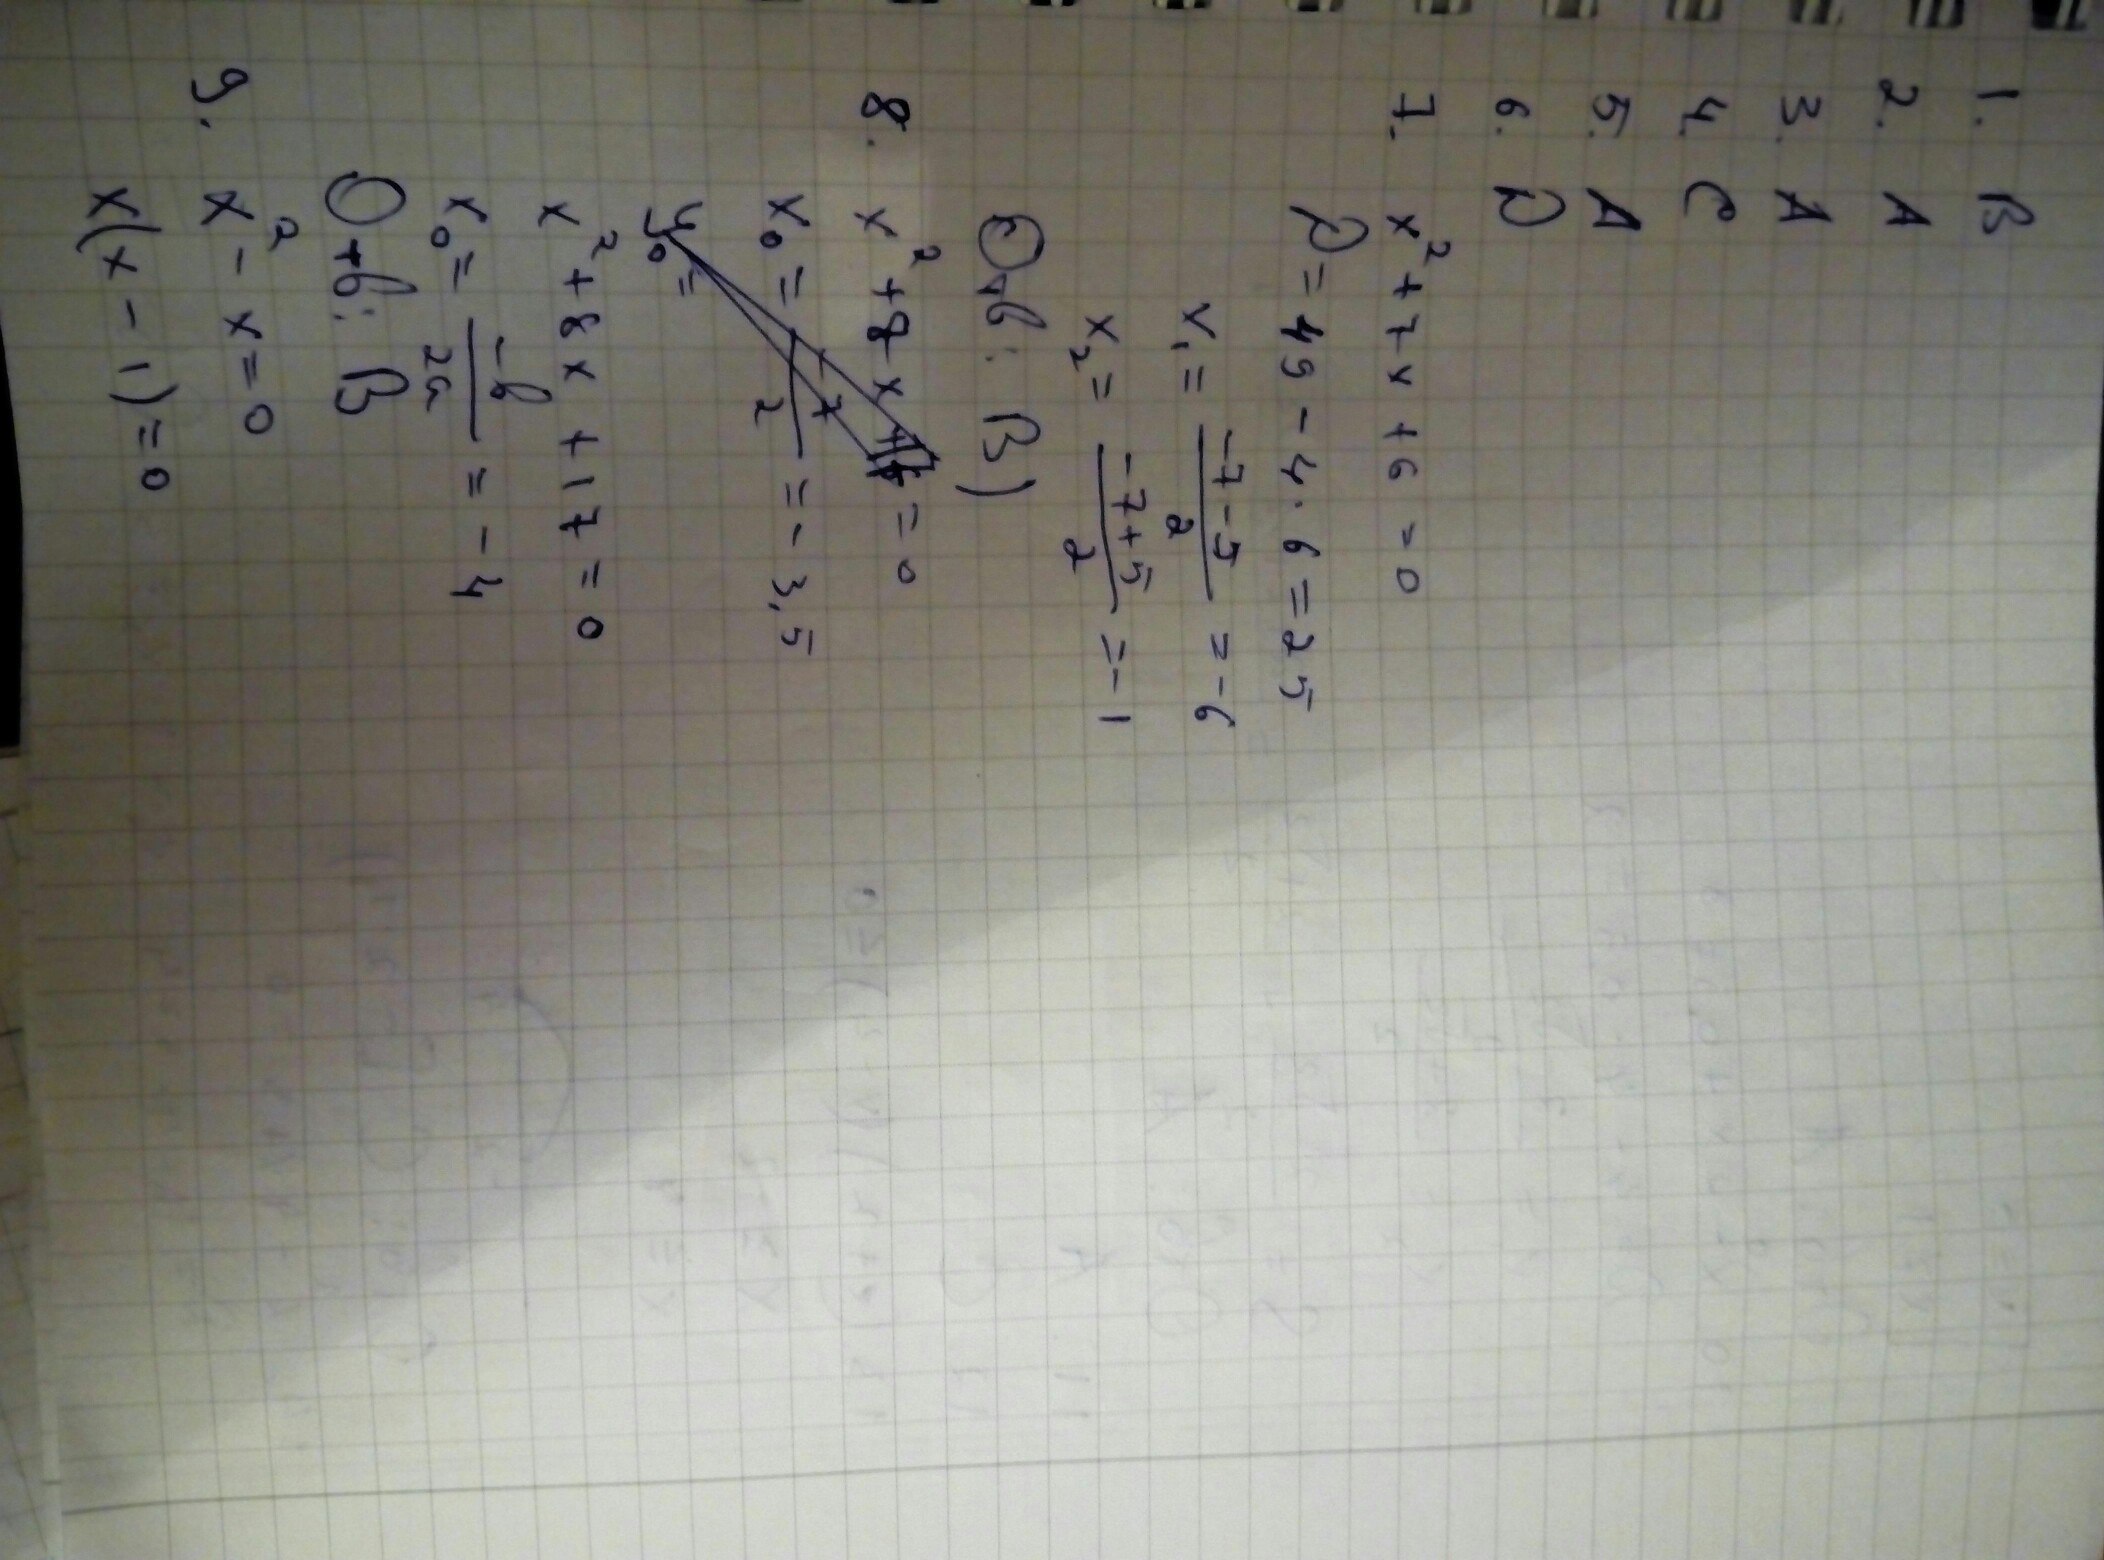 1. B
2. A
3. A
4. C
5. A
6. D
7. x² + 7x + 6 = 0
D = 49 - 4 · 6 = 25
x₁ = (-7-5)/2 = -6
x₂ = (-7+5)/2 = -1
Отв: B)
8. x² + 8x = 0
x₀ = -7/2 = -3,5
y₀ =
x² + 8x + 17 = 0
x₀ = -b/2a = -4
Отв: B
9. x² - x = 0
x(x - 1) = 0